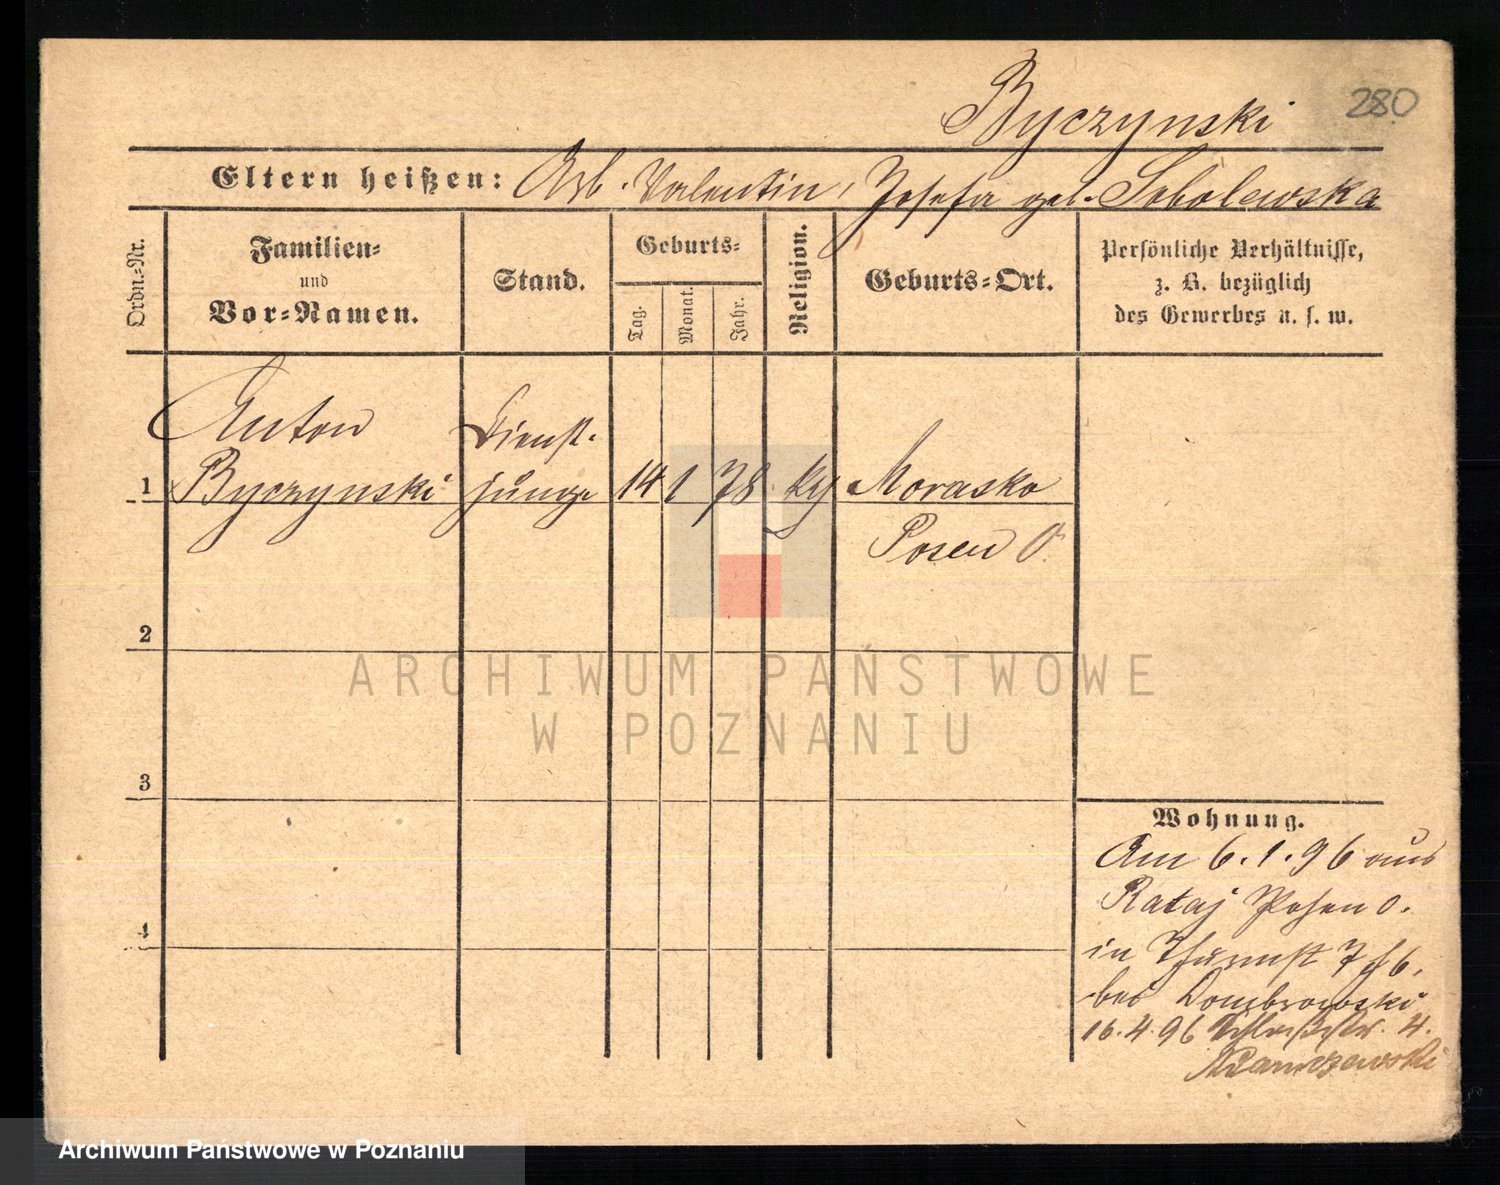 Byczynski 280
Eltern heißen: Arb. Valentin, Josefa geb. Sobolewska
Ordn.-Nr.
Familien-
und
Vor-Namen.
Stand.
Geburts-
Tag.
Monat.
Jahr.
Religion.
Geburts-Ort.
Persönliche Verhältnisse,
z. B. bezüglich
des Gewerbes u. s. w.
Anton Dienst-
1 Byczynski junge 14 1 78 Morasko
Posen O.
2
3
4
Wohnung.
Am 6.1.96 aus
Rataj Posen O.
in Thurmstr 7
bei Dombrowski
16.4.96 4.
Adamczewski
ARCHIWUM PAŃSTWOWE
W POZNANIU
Archiwum Państwowe w Poznaniu